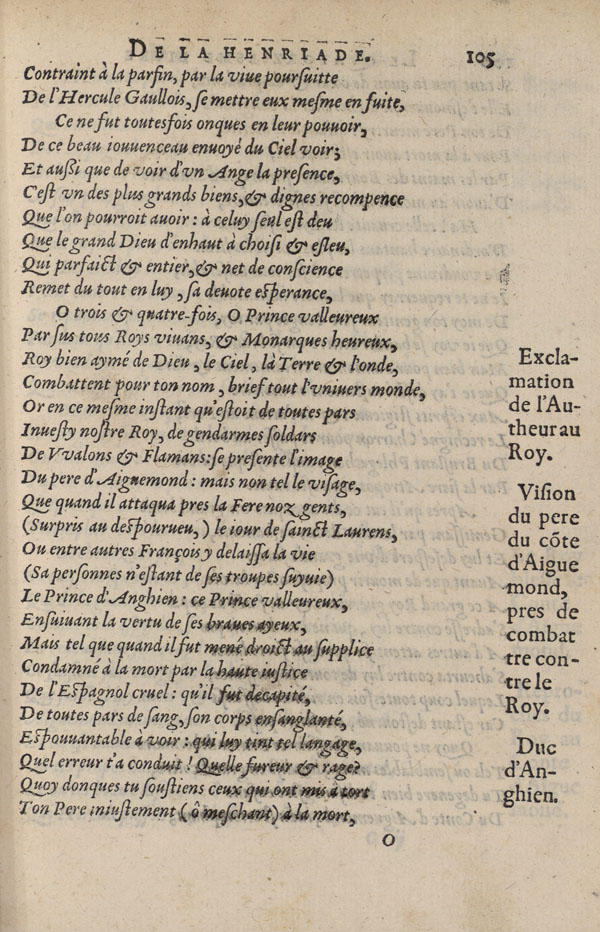 DE LA HENRIADE. 105
Contraint à la parfin, par la viue poursuitte
De l'Hercule Gaullois, se mettre eux mesme en fuite,
Ce ne fut toutesfois onques en leur pouuoir,
De ce beau iouuenceau enuoyé du Ciel voir;
Et aussi que de voir d'vn Ange la presence,
C'est vn des plus grands biens, & dignes recompence
Que l'on pourroit auoir : à celuy seul est deu
Que le grand Dieu d'enhaut à choisi & esleu,
Qui parfaict & entier, & net de conscience
Remet du tout en luy, sa deuote esperance,
O trois & quatre-fois, O Prince valleureux
Par sus tous Roys viuans, & Monarques heureux,
Roy bien aymé de Dieu, le Ciel, là Terre & l'onde,
Combattent pour ton nom, brief tout l'vniuers monde,
Or en ce mesme instant qu'estoit de toutes pars
Inuesty nostre Roy, de gendarmes soldars
De Vvalons & Flamans: se presente l'image
Du pere d'Aiguemond : mais non tel le visage,
Que quand il attaqua pres la Fere noz gents,
(Surpris au despourueu,) le iour de sainct Laurens,
Ou entre autres François y delaissa la vie
(Sa personnes n'estant de ses troupes suyuie)
Le Prince d'Anghien : ce Prince valleureux,
Ensuiuant la vertu de ses braues ayeux,
Mais tel que quand il fut mené droict au supplice
Condamné à la mort par la haute iustice
De l'Espagnol cruel : qu'il fut decapité,
De toutes pars de sang, son corps ensanglanté,
Espouuantable à voir : qui luy tint tel langage,
Quel erreur t'a conduit ! Quelle fureur & rage?
Quoy donques tu soustiens ceux qui ont mis à tort
Ton Pere iniustement (ô meschant) à la mort,
O
Excla-
mation
de l'Au-
theur au
Roy.
Vision
du pere
du côte
d'Aigue
mond,
pres de
combat
tre con-
tre le
Roy.
Duc
d'An-
ghien.